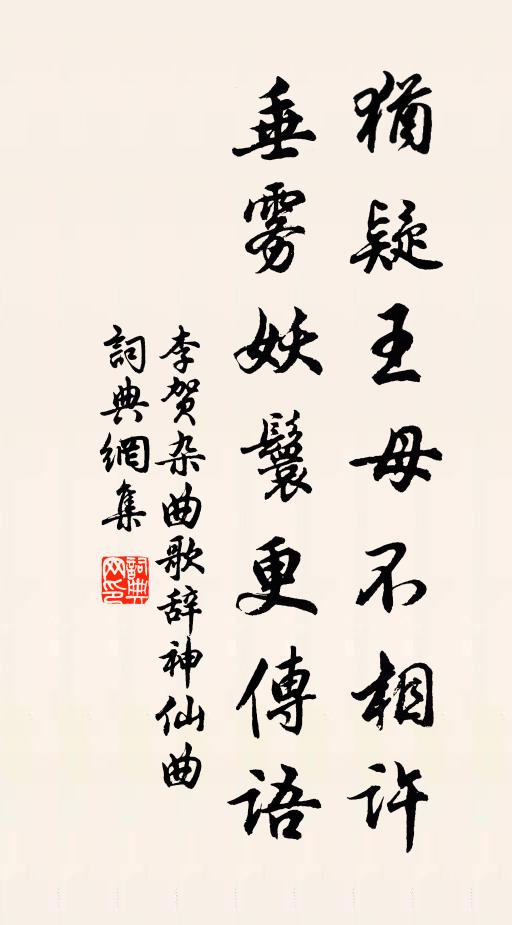 猶疑王母不相許
垂雾妖鬟更傳語
李贺杂曲歌辞神仙曲
詞典網集
詞典网印